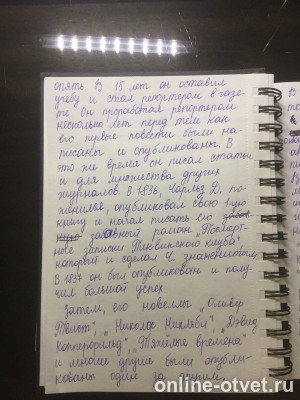 опять. В 15 лет он оставил
учебу и стал репортером в газе-
те. Он проработал репортером
несколько лет перед тем как
его первые повести были на-
писаны и опубликованы. В
это же время он писал статьи
и для множества других
журналов. В 1836, Чарльз Д. по-
женился, опубликовал свою 1-ую
книгу и начал писать его
забавный роман „Посмерт-
ные записки Пиквикского клуба",
который и сделал Ч. знаменитым.
В 1837 он был опубликован и полу-
чил большой успех.
Затем, его новеллы „Оливер
Твист", „Николас Никльби", „Дэвид
Копперфильд", „Тяжёлые времена"
и многие другие были опубли-
кованы один за другим.
online-otvet.ru